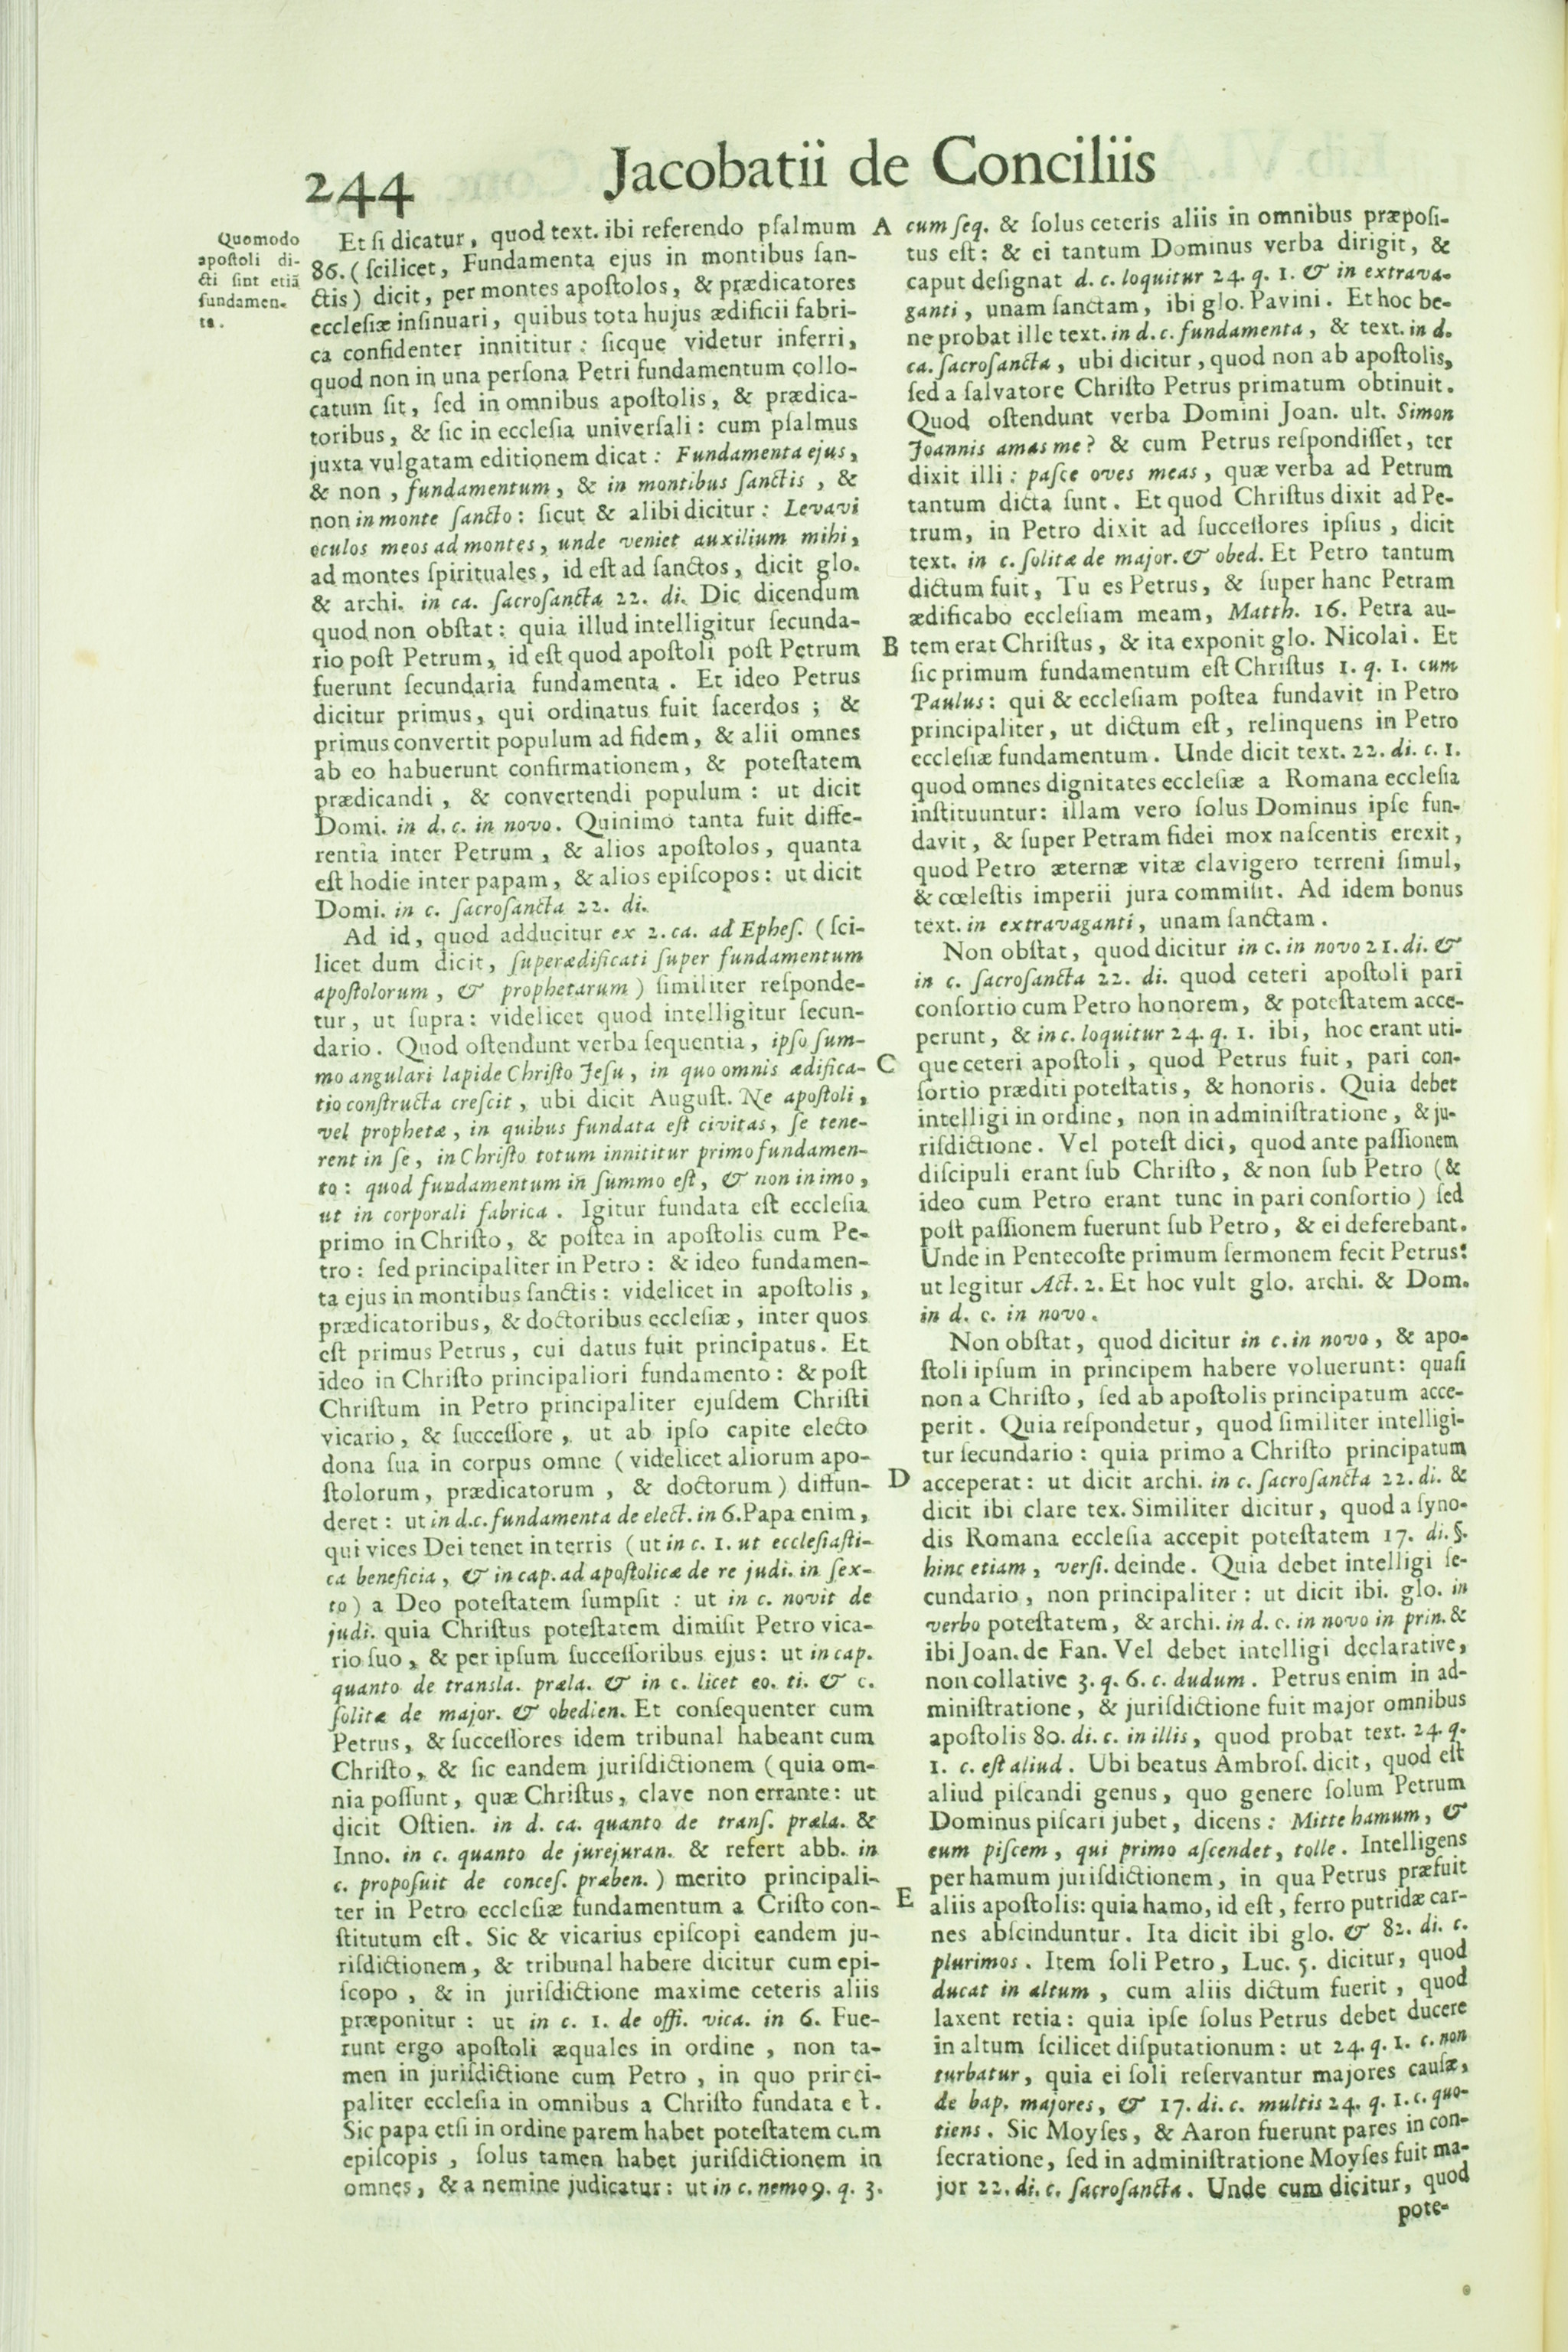 244
Jacobatii de Conciliis
Quomodo
apoſtoli di-
cti ſint etiã
fundamen-
ta.
Et ſi dicatur, quod text. ibi referendo pſalmum
86. (ſcilicet, Fundamenta ejus in montibus ſan-
ctis) dicit, per montes apoſtolos, & prædicatores
eccleſiæ inſinuari, quibus tota hujus ædificii fabri-
ca confidenter innititur: ſicque videtur inferri,
quod non in una perſona Petri fundamentum collo-
catum ſit, ſed in omnibus apoſtolis, & prædica-
toribus, & ſic in eccleſia univerſali: cum pſalmus
juxta vulgatam editionem dicat: Fundamenta ejus,
& non, fundamentum, & in montibus ſanctis, &
non in monte ſancto: ſicut & alibi dicitur: Levavi
oculos meos ad montes, unde veniet auxilium mihi,
ad montes ſpirituales, id eſt ad ſanctos, dicit glo.
& archi. in ca. ſacroſancta 22. di. Dic dicendum
quod non obſtat: quia illud intelligitur ſecunda-
rio poſt Petrum, id eſt quod apoſtoli poſt Petrum
fuerunt ſecundaria fundamenta. Et ideo Petrus
dicitur primus, qui ordinatus fuit ſacerdos; &
primus convertit populum ad fidem, & alii omnes
ab eo habuerunt confirmationem, & poteſtatem
prædicandi, & convertendi populum: ut dicit
Domi. in d. c. in novo. Quinimo tanta fuit diffe-
rentia inter Petrum, & alios apoſtolos, quanta
eſt hodie inter papam, & alios epiſcopos: ut dicit
Domi. in c. ſacroſancta 22. di.
Ad id, quod adducitur ex 2. ca. ad Epheſ. (ſci-
licet dum dicit, ſuperædificati ſuper fundamentum
apoſtolorum, & prophetarum) ſimiliter reſponde-
tur, ut ſupra: videlicet quod intelligitur ſecun-
dario. Quod oſtendunt verba ſequentia, ipſo ſum-
mo angulari lapide Chriſto Jeſu, in quo omnis ædifica-
tio conſtructa creſcit, ubi dicit Auguſt. Ne apoſtoli,
vel prophetæ, in quibus fundata eſt civitas, ſe tene-
rent in ſe, in Chriſto totum innititur primo fundamen-
to: quod fundamentum in ſummo eſt, & non in imo,
ut in corporali fabrica. Igitur fundata eſt eccleſia
primo in Chriſto, & poſtea in apoſtolis cum Pe-
tro: ſed principaliter in Petro: & ideo fundamen-
ta ejus in montibus ſanctis: videlicet in apoſtolis,
prædicatoribus, & doctoribus eccleſiæ, inter quos
eſt primus Petrus, cui datus fuit principatus. Et
ideo in Chriſto principaliori fundamento: & poſt
Chriſtum in Petro principaliter ejuſdem Chriſti
vicario, & ſucceſſore, ut ab ipſo capite electo
dona ſua in corpus omne (videlicet aliorum apo-
ſtolorum, prædicatorum, & doctorum) diffun-
deret: ut in d.c. fundamenta de elect. in 6. Papa enim,
qui vices Dei tenet in terris (ut in c. 1. ut eccleſiaſti-
ca beneficia, & in cap. ad apoſtolicæ de re judi. in ſex-
to) a Deo poteſtatem ſumpſit: ut in c. novit de
judi. quia Chriſtus poteſtatem dimiſit Petro vica-
rio ſuo, & per ipſum ſucceſſoribus ejus: ut in cap.
quanto de transla. præla. & in c. licet eo. ti. & c.
ſolitæ de major. & obedien. Et conſequenter cum
Petrus, & ſucceſſores idem tribunal habeant cum
Chriſto, & ſic eandem jurisdictionem (quia om-
nia poſſunt, quæ Chriſtus, clave non errante: ut
dicit Oſtien. in d. ca. quanto de tranſ. præla. &
Inno. in c. quanto de jurejuran. & refert abb. in
c. propoſuit de conceſ. præben.) merito principali-
ter in Petro eccleſiæ fundamentum a Criſto con-
ſtitutum eſt. Sic & vicarius epiſcopi eandem ju-
riſdictionem, & tribunal habere dicitur cum epi-
ſcopo, & in juriſdictione maxime ceteris aliis
præponitur: ut in c. 1. de offi. vica. in 6. Fue-
runt ergo apoſtoli æquales in ordine, non ta-
men in juriſdictione cum Petro, in quo princi-
paliter eccleſia in omnibus a Chriſto fundata eſt.
Sic papa etſi in ordine parem habet poteſtatem cum
epiſcopis, ſolus tamen habet juriſdictionem in
omnes, & a nemine judicatur: ut in c. nemo 9. q. 3.
A
B
C
D
E
cum ſeq. & ſolus ceteris aliis in omnibus præpoſi-
tus eſt: & ei tantum Dominus verba dirigit, &
caput deſignat d. c. loquitur 24. q. 1. & in extrava-
ganti, unam ſanctam, ibi glo. Pavini. Et hoc be-
ne probat ille text. in d. c. fundamenta, & text. in d.
ca. ſacroſancta, ubi dicitur, quod non ab apoſtolis,
ſed a ſalvatore Chriſto Petrus primatum obtinuit.
Quod oſtendunt verba Domini Joan. ult. Simon
Joannis amas me? & cum Petrus reſpondiſſet, ter
dixit illi: paſce oves meas, quæ verba ad Petrum
tantum dicta ſunt. Et quod Chriſtus dixit ad Pe-
trum, in Petro dixit ad ſucceſſores ipſius, dicit
text. in c. ſolitæ de major. & obed. Et Petro tantum
dictum fuit, Tu es Petrus, & ſuper hanc Petram
ædificabo eccleſiam meam, Matth. 16. Petra au-
tem erat Chriſtus, & ita exponit glo. Nicolai. Et
ſic primum fundamentum eſt Chriſtus 1. q. 1. cum
Paulus: qui & eccleſiam poſtea fundavit in Petro
principaliter, ut dictum eſt, relinquens in Petro
eccleſiæ fundamentum. Unde dicit text. 22. di. c. 1.
quod omnes dignitates eccleſiæ a Romana eccleſia
inſtituuntur: illam vero ſolus Dominus ipſe fun-
davit, & ſuper Petram fidei mox naſcentis erexit,
quod Petro æternæ vitæ clavigero terreni ſimul,
& cœleſtis imperii jura commiſit. Ad idem bonus
text. in extravaganti, unam ſanctam.
Non obſtat, quod dicitur in c. in novo 21. di. &
in c. ſacroſancta 22. di. quod ceteri apoſtoli pari
conſortio cum Petro honorem, & poteſtatem acce-
perunt, & in c. loquitur 24. q. 1. ibi, hoc erant uti-
que ceteri apoſtoli, quod Petrus fuit, pari con-
ſortio præditi poteſtatis, & honoris. Quia debet
intelligi in ordine, non in adminiſtratione, & ju-
riſdictione. Vel poteſt dici, quod ante paſſionem
diſcipuli erant ſub Chriſto, & non ſub Petro (&
ideo cum Petro erant tunc in pari conſortio) ſed
poſt paſſionem fuerunt ſub Petro, & ei deferebant.
Unde in Pentecoſte primum ſermonem fecit Petrus:
ut legitur Act. 2. Et hoc vult glo. archi. & Dom.
in d. c. in novo.
Non obſtat, quod dicitur in c. in novo, & apo-
ſtoli ipſum in principem habere voluerunt: quaſi
non a Chriſto, ſed ab apoſtolis principatum acce-
perit. Quia reſpondetur, quod ſimiliter intelligi-
tur ſecundario: quia primo a Chriſto principatum
acceperat: ut dicit archi. in c. ſacroſancta 22. di. &
dicit ibi clare tex. Similiter dicitur, quod a ſyno-
dis Romana eccleſia accepit poteſtatem 17. di. §.
hinc etiam, verſi. deinde. Quia debet intelligi ſe-
cundario, non principaliter: ut dicit ibi. glo. in
verbo poteſtatem, & archi. in d. c. in novo in prin. &
ibi Joan. de Fan. Vel debet intelligi declarative,
non collative 3. q. 6. c. dudum. Petrus enim in ad-
miniſtratione, & juriſdictione fuit major omnibus
apoſtolis 80. di. c. in illis, quod probat text. 24. q.
1. c. eſt aliud. Ubi beatus Ambroſ. dicit, quod eſt
aliud piſcandi genus, quo genere ſolum Petrum
Dominus piſcari jubet, dicens: Mitte hamum, &
eum piſcem, qui primo aſcendet, tolle. Intelligens
per hamum juriſdictionem, in qua Petrus præfuit
aliis apoſtolis: quia hamo, id eſt, ferro putridæ car-
nes abſcinduntur. Ita dicit ibi glo. & 82. di. c.
plurimos. Item ſoli Petro, Luc. 5. dicitur, quod
ducat in altum, cum aliis dictum fuerit, quod
laxent retia: quia ipſe ſolus Petrus debet ducere
in altum ſcilicet diſputationum: ut 24. q. 1. c. non
turbatur, quia ei ſoli reſervantur majores cauſæ,
de bap. majores, & 17. di. c. multis 24. q. 1. c. quo-
tiens. Sic Moyſes, & Aaron fuerunt pares in con-
ſecratione, ſed in adminiſtratione Moyſes fuit ma-
jor 22. di. c. ſacroſancta. Unde cum dicitur, quod
pote-